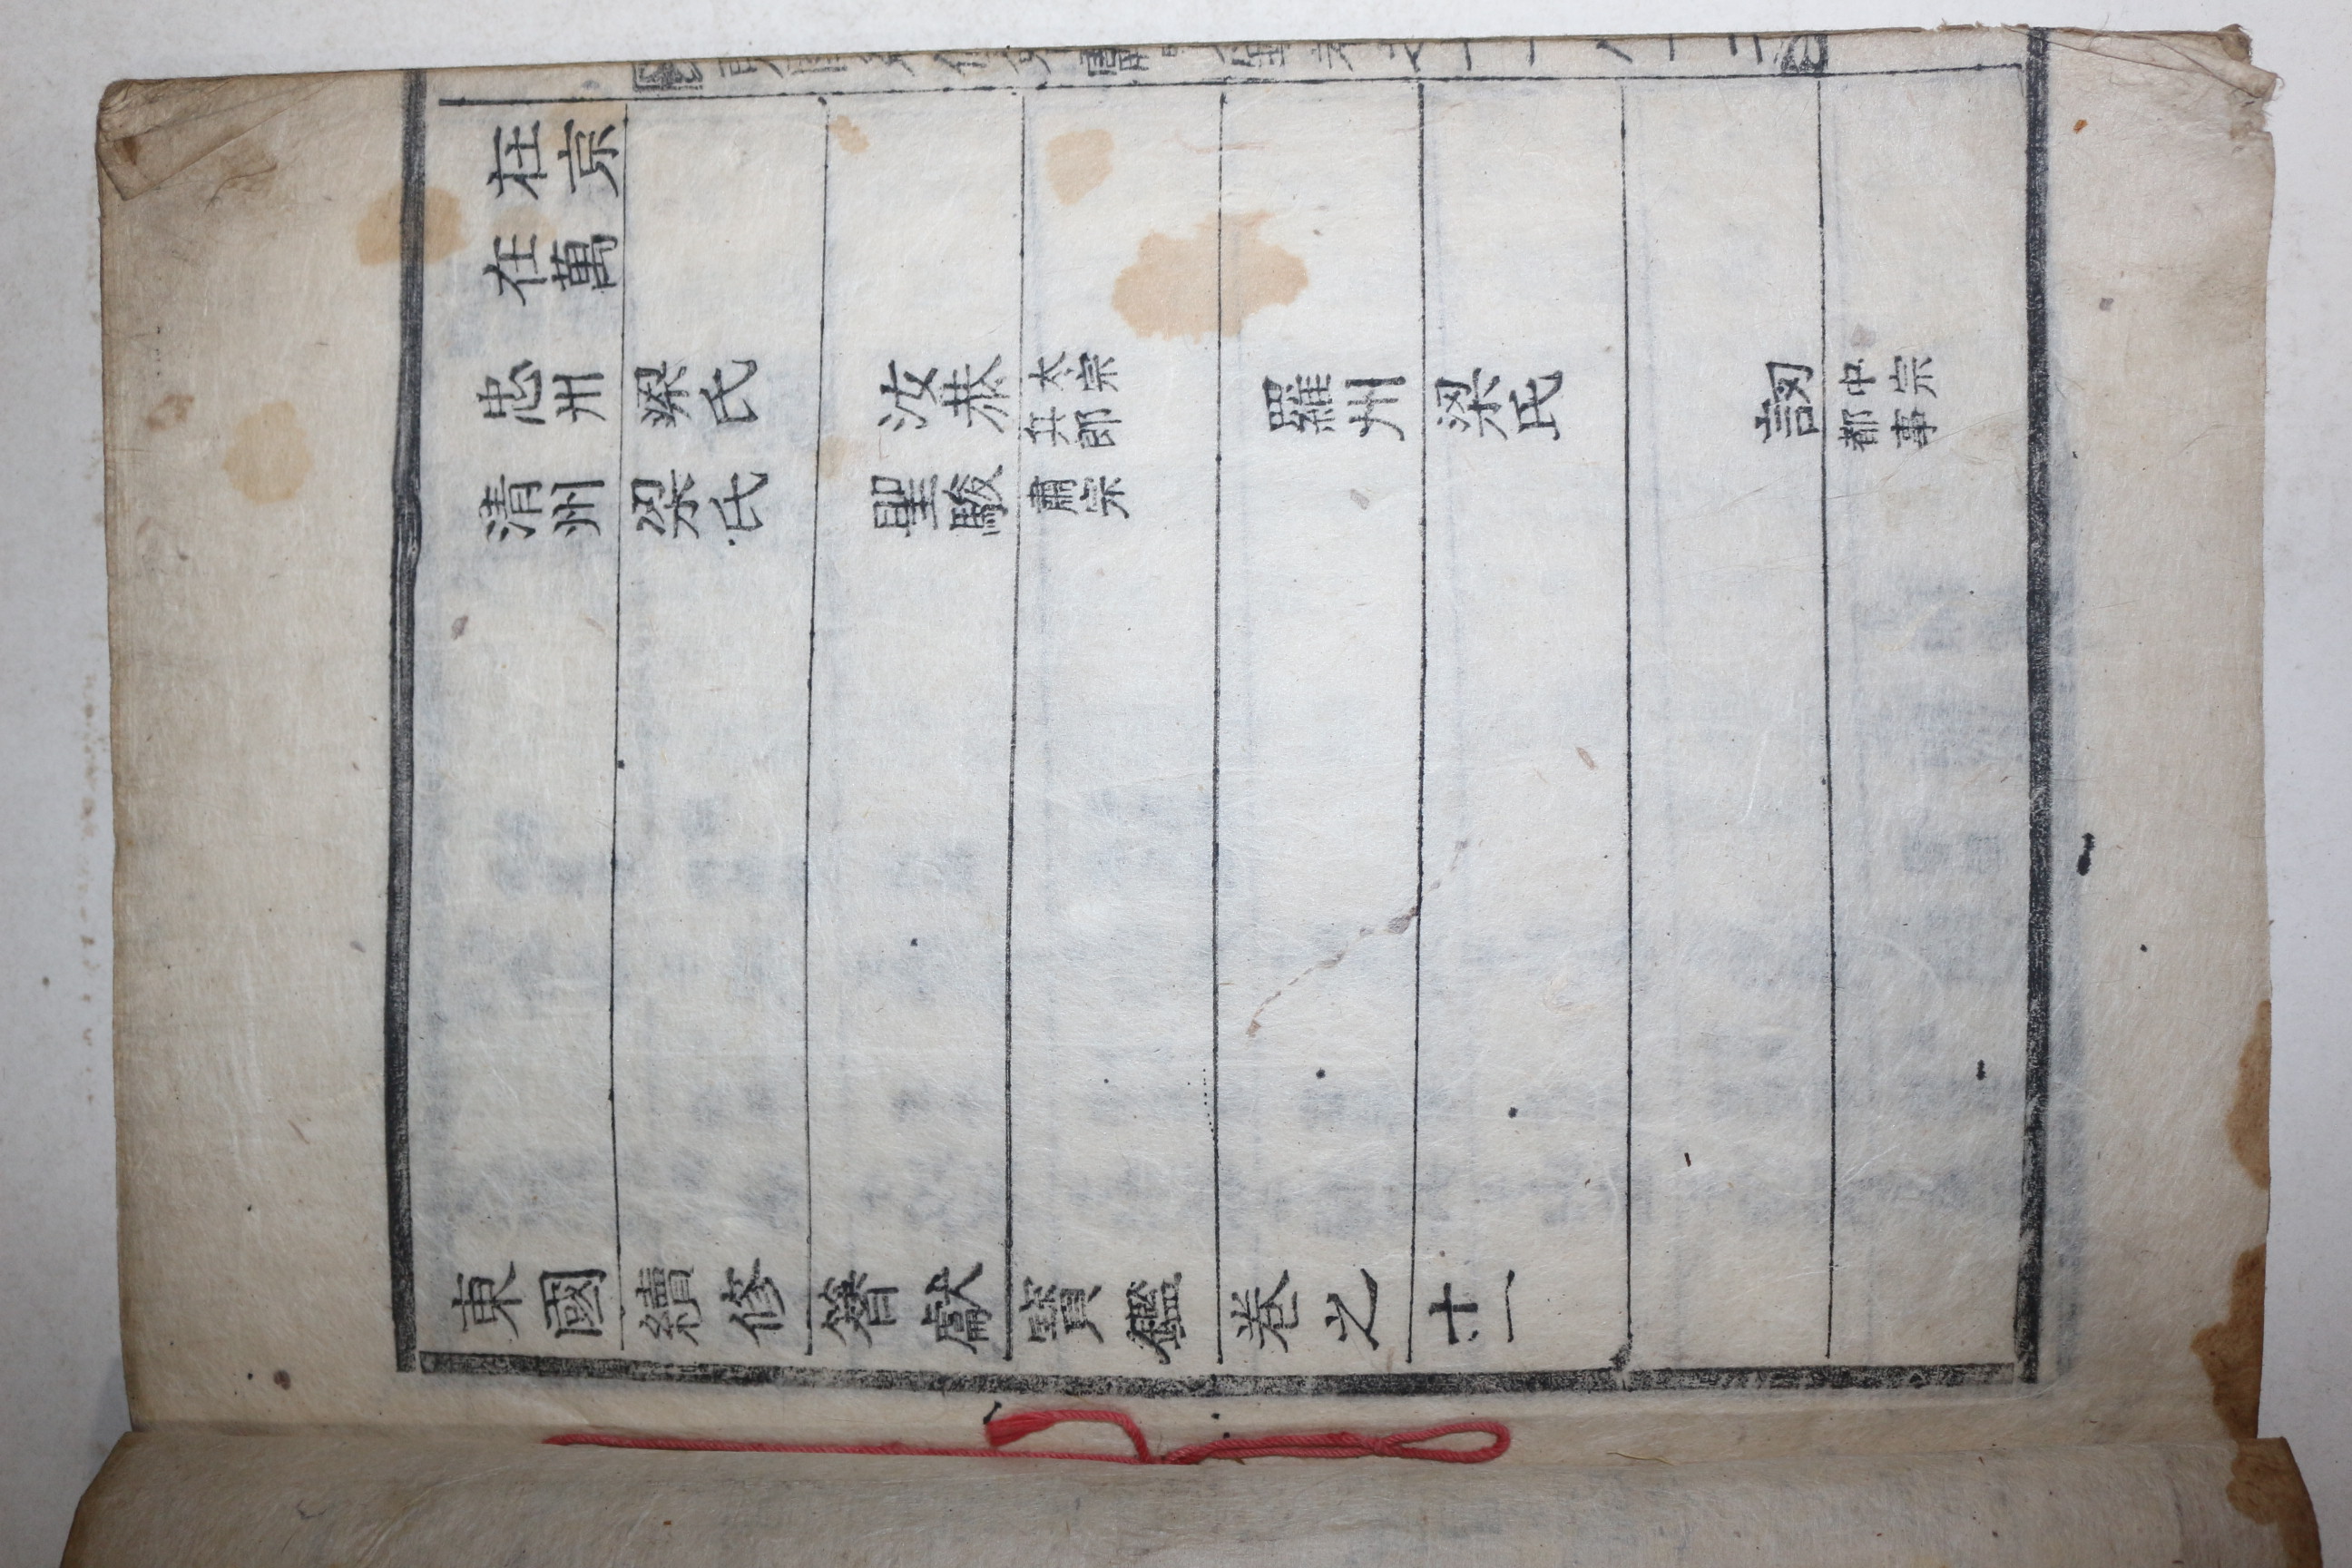 在京
在萬
忠州梁氏汝恭太宗兵郎羅州梁氏訒中宗都事
清州梁氏聖駿肅宗
東國續修簪獻寶鑑卷之十一